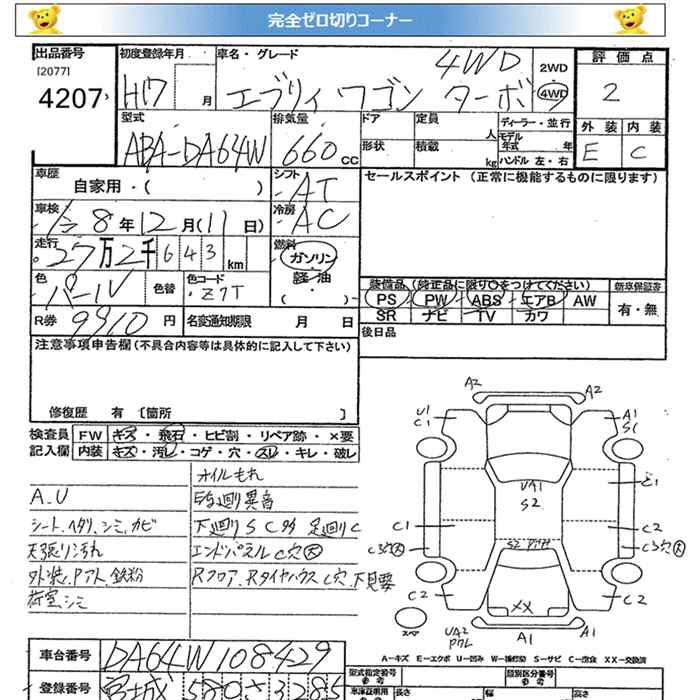 完全ゼロ切りコーナー
出品番号 初度登録年月 車名・グレード 4WD 2WD 評価点
[2077] 4207 H17 月 エブリィ ワゴン ターボ 4WD 2
型式 排気量 ドア 定員 ディーラー・並行 外装 内装
ABA-DA64W 660 cc 人 モデル年式 年 E C
形状 積載 kg ハンドル 左・右
車歴 自家用・( ) シフト AT セールスポイント (正常に機能するものに限ります)
車検 令8年12月(11日) 冷房 AC
走行 27万2千643 km 燃料 ガソリン・軽油・( )
色 パール 色替 色コード Z7T 装備品 (純正品に限り○をつけてください) 新車保証書
PS PW ABS エアB AW 有・無
SR ナビ TV カワ
R券 9910 円 名変通知期限 月 日 後日品
注意事項申告欄 (不具合内容等は具体的に記入して下さい)
修復歴 有 [箇所 ]
検査員 FW キズ・飛石・ヒビ割・リペア跡・×要
記入欄 内装 キズ・汚レ・コゲ・穴・スレ・キレ・破レ
オイルもれ
A.U
シート、ヘタリ、シミ、カビ 下廻りSC 足廻りC
天張り汚れ エンドパネルC穴大
外装、Pアト、鉄粉 Rフロア、RタイヤハウスC穴、下見要
荷室シミ
A2 A2
U1 A1
C1 S1
UA1 C1
S2
C1 C2
C3穴大 C3穴大
C2 XX C2
スペア UA2 A1 A1
A-キズ E-エクボ U-凹み W-補修跡 S-サビ C-腐食 XX-交換済
車台番号 DA64W108429 型式指定番号 類別区分番号
登録番号 宮城 580 さ 3285 長さ 幅 高さ